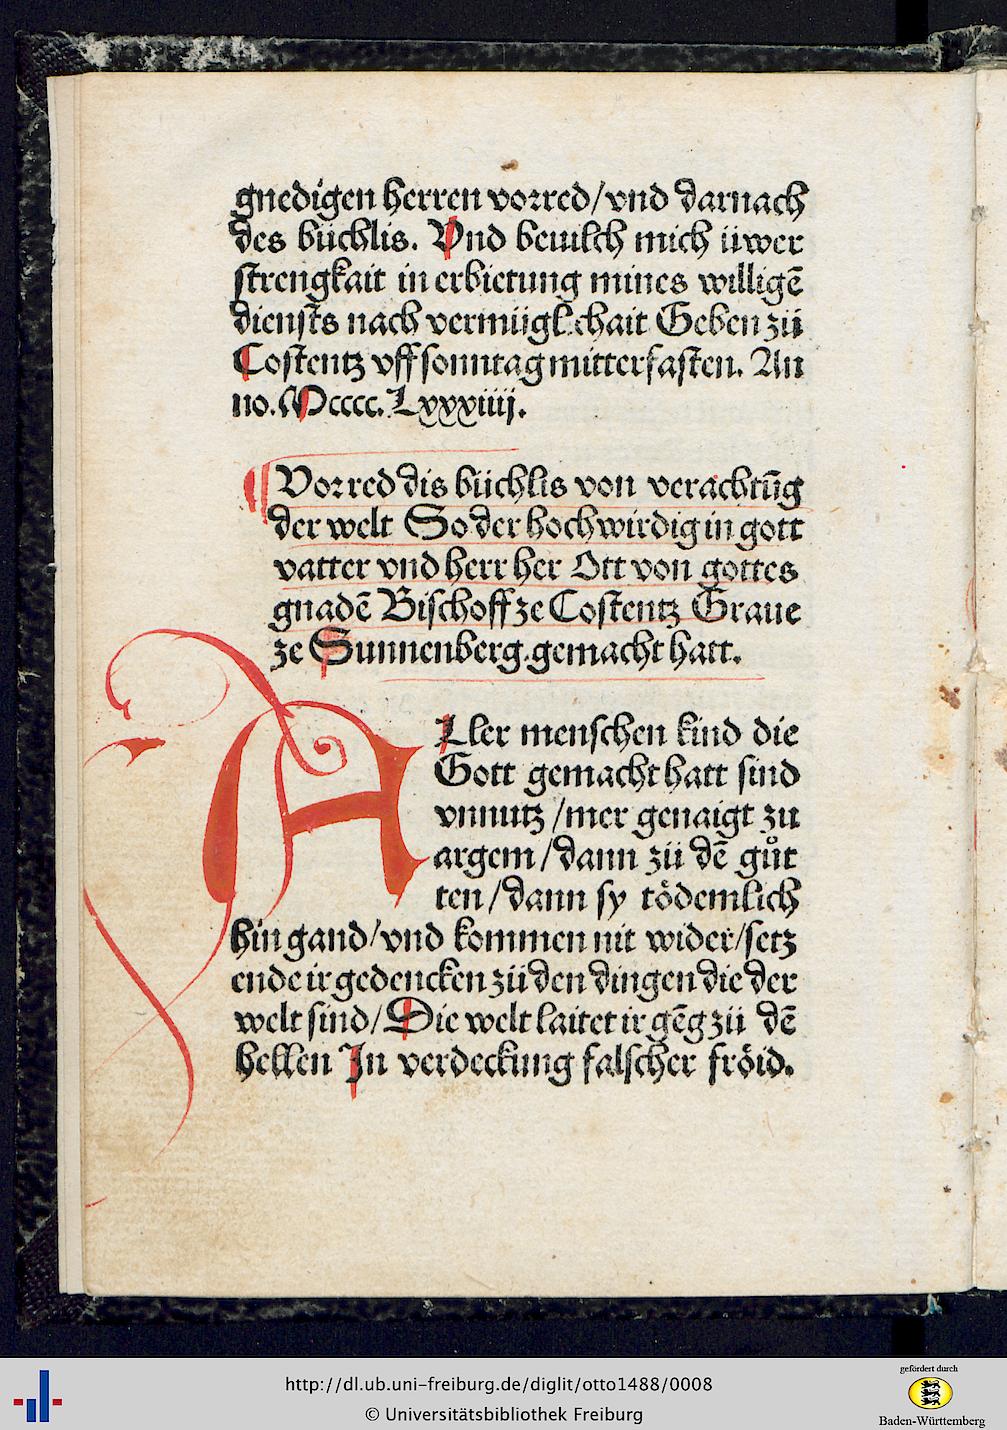 gnedigen herren vorred/vnd darnach
des büchlis. Vnd beuilch mich üwer
strengkait in erbietung mines willigē
diensts nach vermüglichait Geben zü
Costentz vff sonntag mitterfasten. An
no. Mcccc. Lxxxiiij.
Vorred dis büchlis von verachtūg
der welt So der hochwirdig in gott
vatter vnd herr her Ott von gottes
gnadē Bischoff ze Costentz Graue
ze Sunnenberg.gemacht hatt.
ALler menschen kind die
Gott gemacht hatt sind
vnnutz /mer genaigt zu
argem/dann zü dē gůt
ten/dann sy tödemlich
hin gand/vnd kommen nit wider/setz
ende ir gedencken zü den dingen die der
welt sind/Die welt laitet ir gēg zü dē
hellen In verdeckung falscher fröid.
http://dl.ub.uni-freiburg.de/diglit/otto1488/0008
© Universitätsbibliothek Freiburg
gefördert durch
Baden-Württemberg